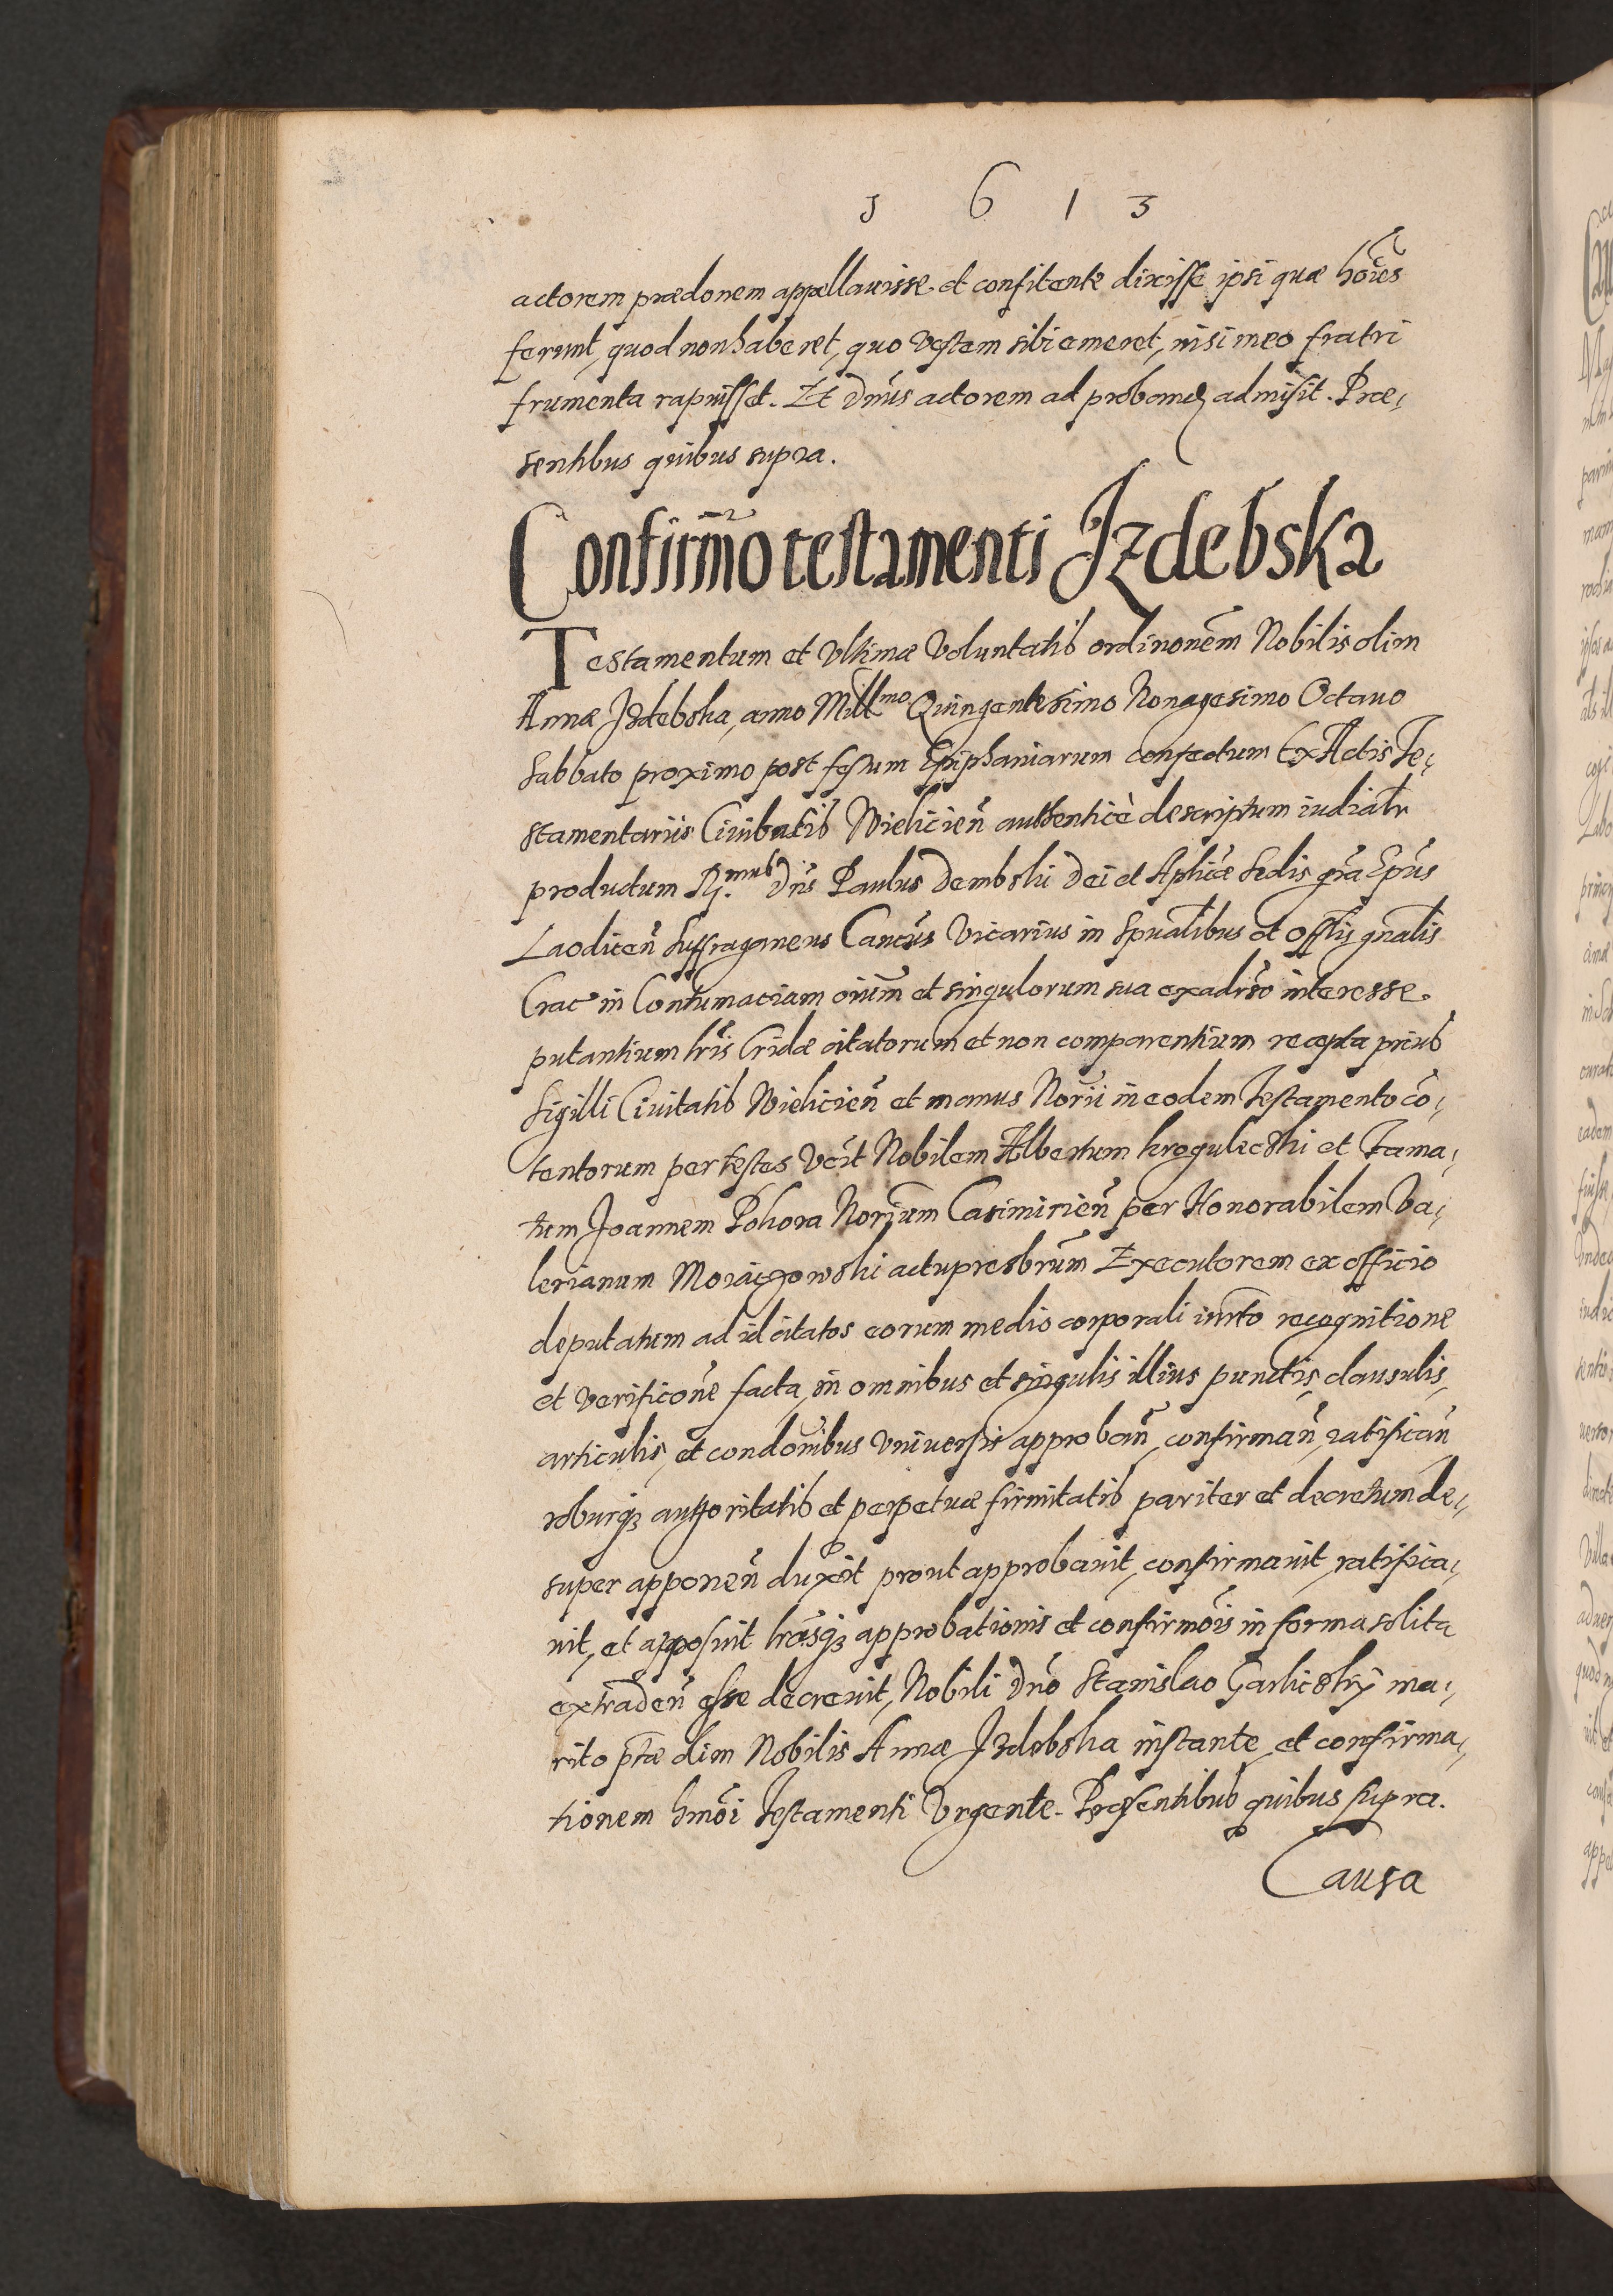 1 6 1 3
actorem prædonem appellauisse. et confitente dixisse ipsi quæ hoı̃es
ferunt, quod non haberet, quo vestem sibi emeret, nisi meo fratri
frumenta rapuisset. Et Dnũs actorem ad proband admisit. Præ,
sentibus quibus supra.
Confirm̃o testamenti Jzdebska
Testamentum et vltimæ voluntatis ordinonẽm Nobilis olim
Annæ Jzdebska, anno Millmo Quingentesimo Nonagesimo Octauo
Sabbato proximo post festum Epiphaniarum confectum Ex Actis Te,
stamentariis Ciuitatis Wielicien̄ authenticè descriptum iudialr̃
productum R.mus Dn̄s Paulus Dembski Dei et Aplicæ̃ Sedis grã Epũs
Laodicen̄ Suffraganeus Cancũs Vicarius in Spualĩbus et Offlis̃ gnalĩs
Crac in Contumaciam oium̃ et singulorum sua exadrso̅ interesse.
putantium lrĩs Cridæ citatorum et non comparentium recepta prius
Sigilli Ciuitatis Wielicien̄ et manus Norĩi in eodem Testamento cõ,
tentorum per testes vclt̃ Nobilem Albertum Krogulecski et Fama,
tum Joannem Pokora Norium̃ Casimirien̄ per Honorabilem Va,
lerianum actupresbrum̃ Executorem ex officio
deputatum ad id citatos eorum medio corporali iurto̅ recognitione
et verificonẽ facta, in omnibus et singulis illius punctis, clausulis,
articulis, et condonĩbus vniuersis approban̄, confirman̄, ratifican̄
roburq3 authoritatis et perpetuæ firmitatis pariter et decretum de,
super apponen̄ duxit prout approbauit, confirmauit, ratifica,
uit, et apposuit lrãsq3 approbationis et confirmõis in forma solita
extraden̄ esse decreuit, Nobili Dnõ Stanislao Garlicskij ma,
rito ptæ̃ olim Nobilis Annæ Jzdebska instante, et confirma,
tionem hmõi Testamenti vrgente. Præsentibus quibus supra.
Causa